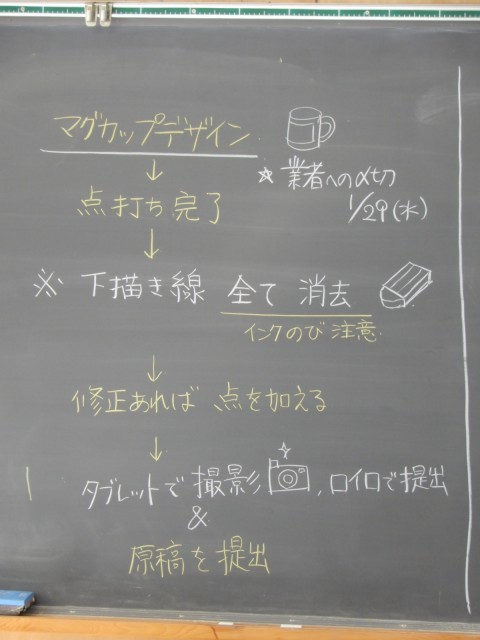 マグカップデザイン
☆ 業者への〆切
1/29(水)
↓
点打ち完了
↓
※ 下描き線 全て 消去
インクのび 注意
↓
修正あれば 点を加える
↓
タブレットで 撮影 , ロイロで提出
&
原稿を提出